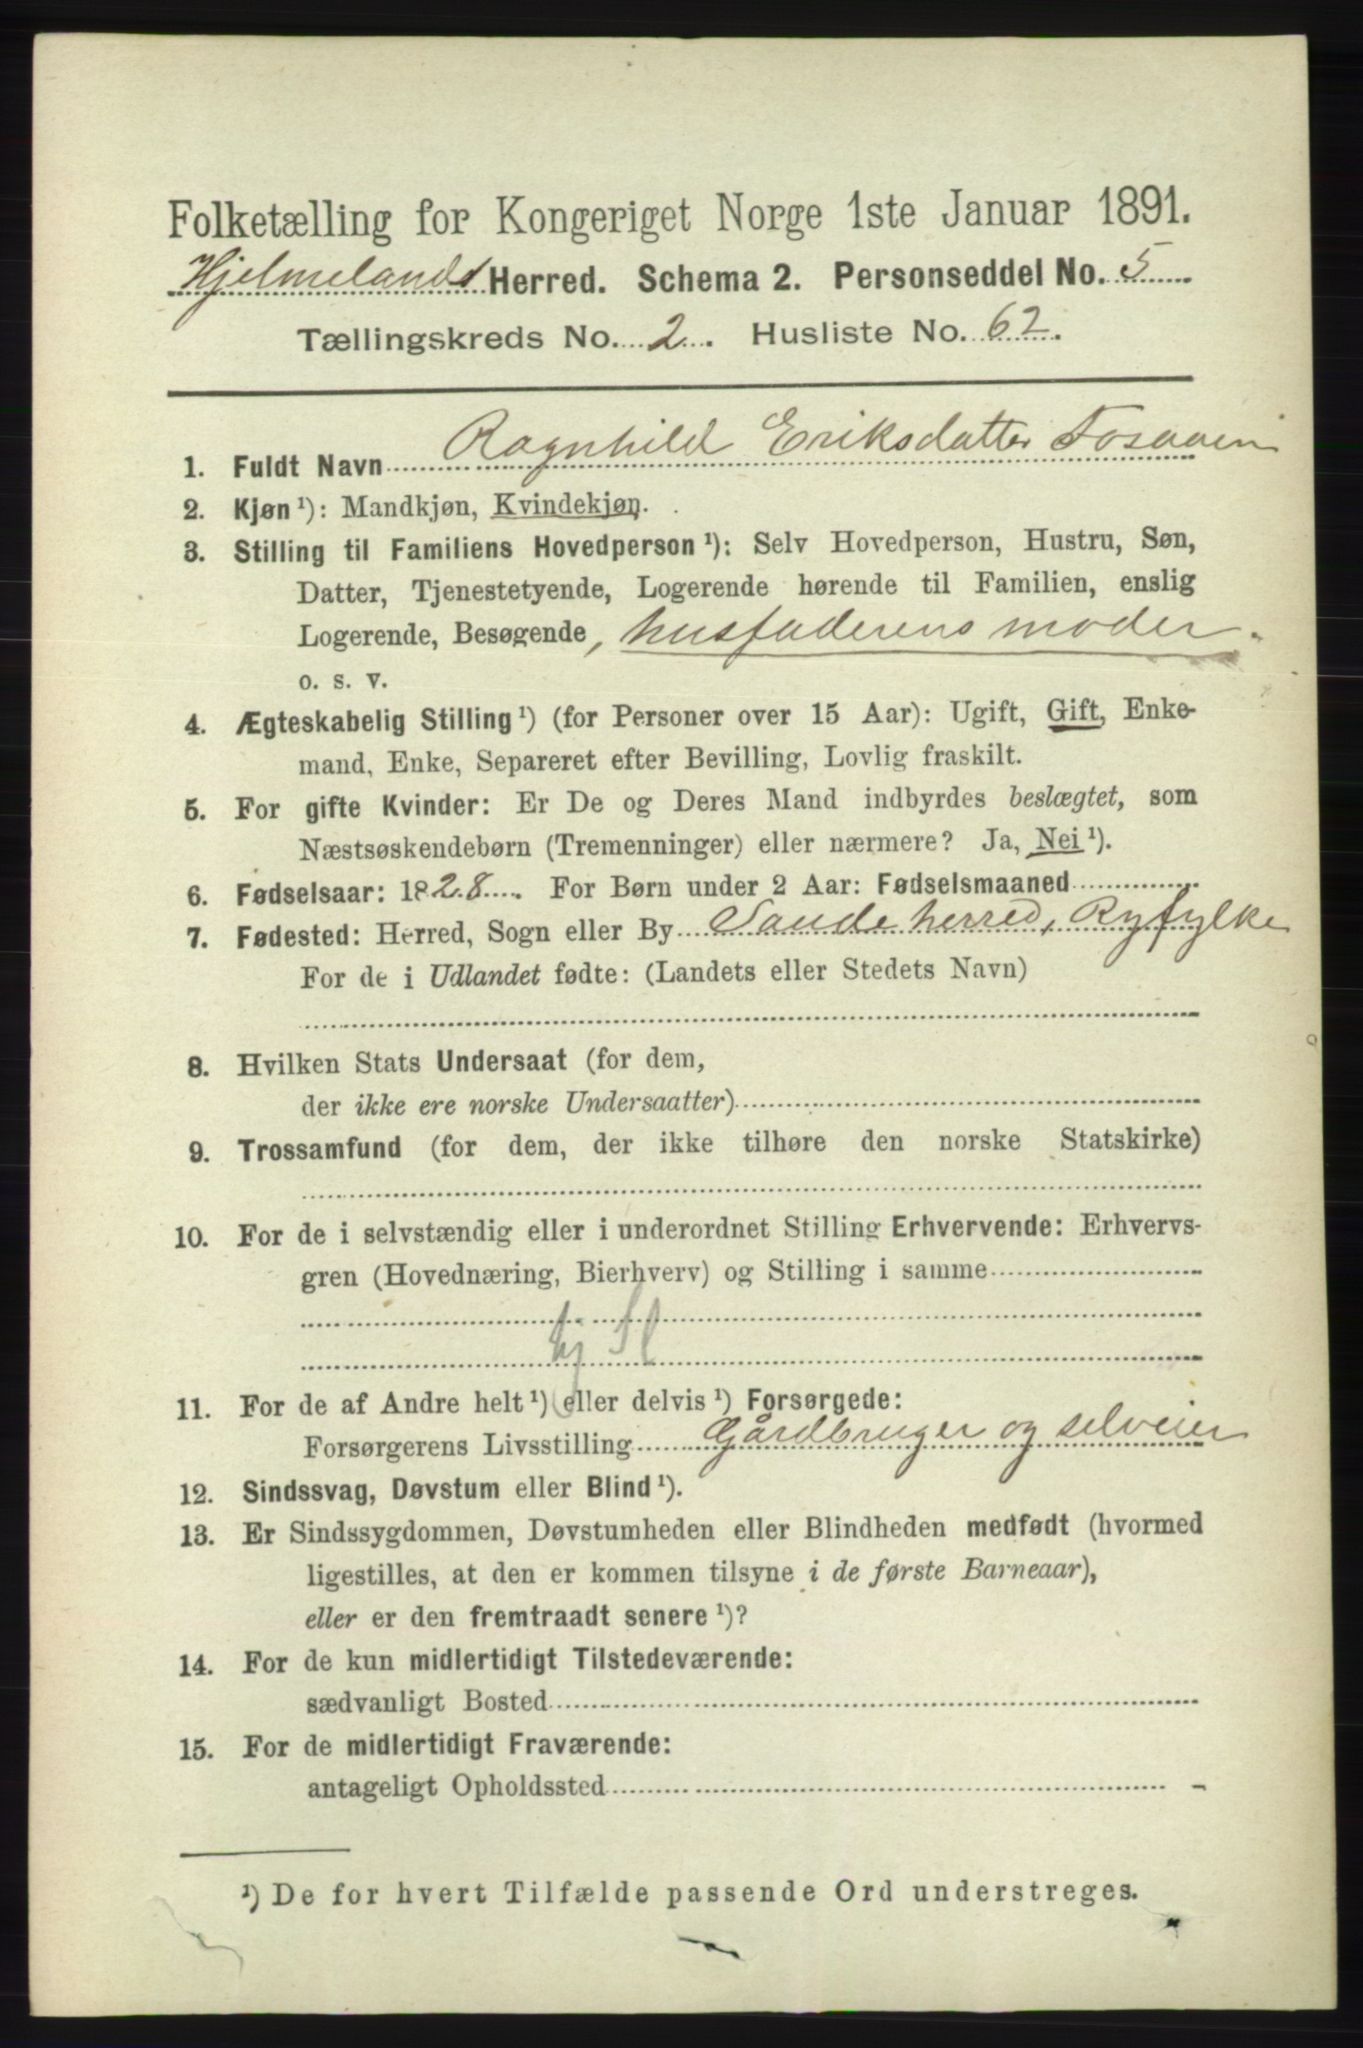 Folketælling for Kongeriget Norge 1ste Januar 1891.
Hjelmelands Herred. Schema 2. Personseddel No. 5
Tællingskreds No. 2. Husliste No. 62.
1. Fuldt Navn Ragnhild Eriksdatter Fosaaen
2. Kjøn ¹): Mandkjøn, Kvindekjøn.
3. Stilling til Familiens Hovedperson ¹): Selv Hovedperson, Hustru, Søn,
Datter, Tjenestetyende, Logerende hørende til Familien, enslig
Logerende, Besøgende, husfaderens moder.
o. s. v.
4. Ægteskabelig Stilling ¹) (for Personer over 15 Aar): Ugift, Gift, Enke-
mand, Enke, Separeret efter Bevilling, Lovlig fraskilt.
5. For gifte Kvinder: Er De og Deres Mand indbyrdes beslægtet, som
Næstsøskendebørn (Tremenninger) eller nærmere? Ja, Nei ¹).
6. Fødselsaar: 1828. For Børn under 2 Aar: Fødselsmaaned
7. Fødested: Herred, Sogn eller By Saude herred, Ryfylke
For de i Udlandet fødte: (Landets eller Stedets Navn)
8. Hvilken Stats Undersaat (for dem,
der ikke ere norske Undersaatter)
9. Trossamfund (for dem, der ikke tilhøre den norske Statskirke)
10. For de i selvstændig eller i underordnet Stilling Erhvervende: Erhvervs-
gren (Hovednæring, Bierhverv) og Stilling i samme
11. For de af Andre helt ¹) eller delvis ¹) Forsørgede:
Forsørgerens Livsstilling Gårdbruger og selveier
12. Sindssvag, Døvstum eller Blind ¹).
13. Er Sindssygdommen, Døvstumheden eller Blindheden medfødt (hvormed
ligestilles, at den er kommen tilsyne i de første Barneaar),
eller er den fremtraadt senere ¹)?
14. For de kun midlertidigt Tilstedeværende:
sædvanligt Bosted
15. For de midlertidigt Fraværende:
antageligt Opholdssted
¹) De for hvert Tilfælde passende Ord understreges.